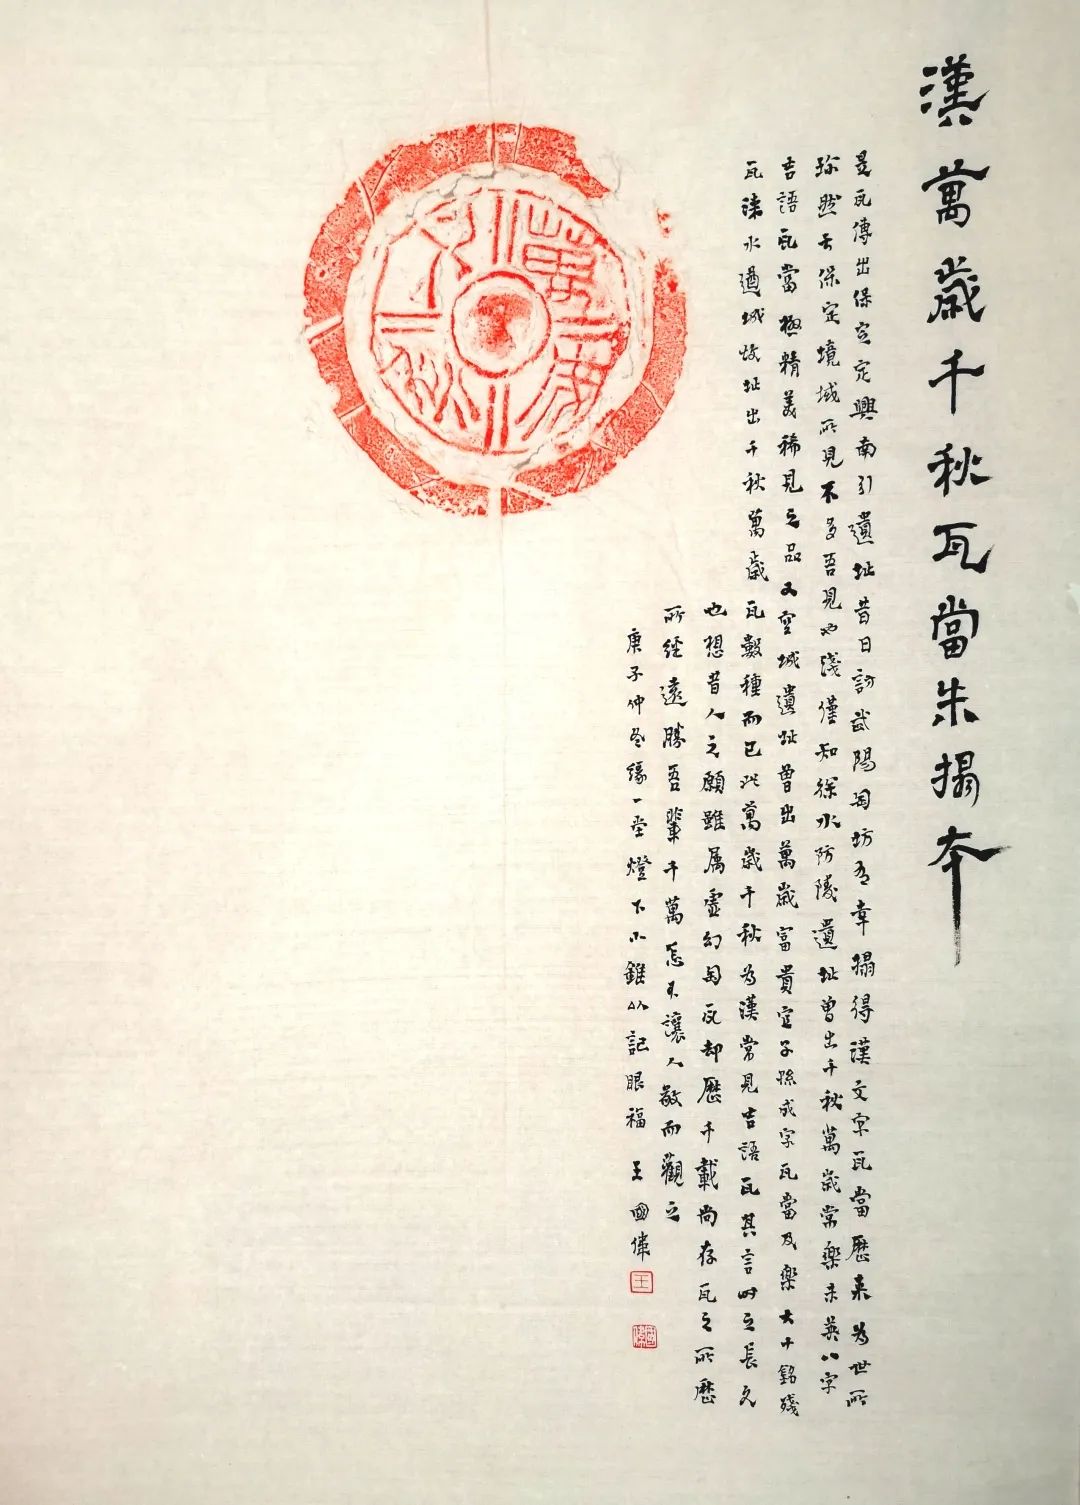 漢萬歲千秋瓦當朱搨本
是瓦傳出保定定興南引遺址昔日訪武陽陶坊有幸搨得漢文字瓦當歷来為世所
珎然于保定境域所見不多吾見也淺僅知徐水防陵遺址曾出千秋萬歲常樂未英八字
吉語瓦當極精美稀見之品又容城遺址曾出萬歲富貴宜子孫成字瓦當及樂大千銘殘
瓦涞水遒城故址出千秋萬歲瓦數種而已此萬歲千秋為漢常見吉語瓦其言時之長久
也想昔人之願雖属虚幻陶瓦却歷千載尚存瓦之所歷
所經遠勝吾輩千萬怎不讓人敬而觀之
庚子仲冬緣一堂燈下小錐以記眼福 王國偉
萬歲千秋
王
國偉